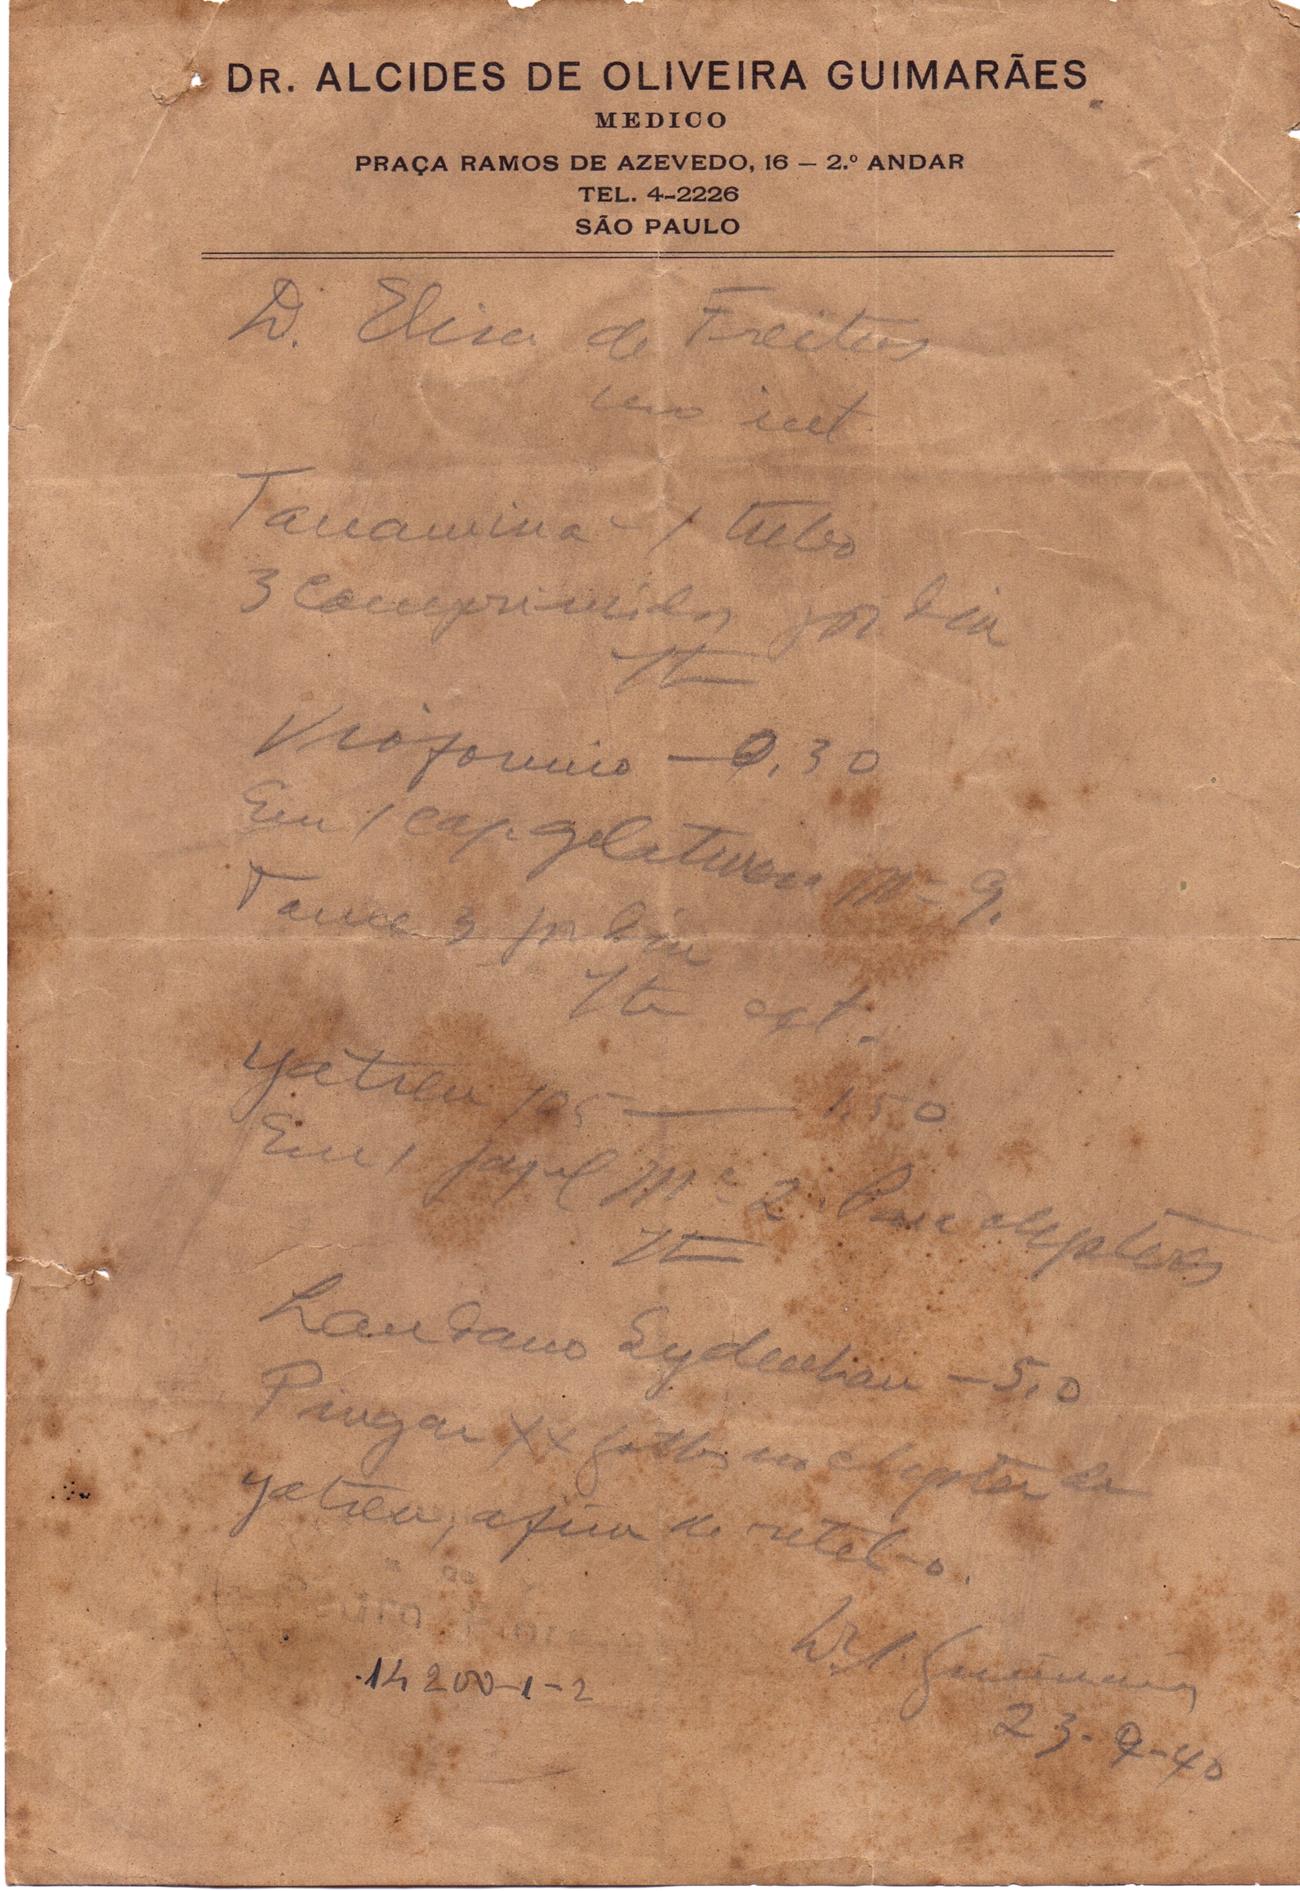 DR. ALCIDES DE OLIVEIRA GUIMARÃES
MEDICO
PRAÇA RAMOS DE AZEVEDO, 16 — 2.º ANDAR
TEL. 4-2226
SÃO PAULO
D. Elisa de Freitas
uso int.
1 tubo
3 comprimidos por dia
Vioformio — 0,30
Em 1 cap. gelatinosa Nº 9.
Tome 3 por dia
ext.
Yatren 105 — 1,50
Em 1 papel Nº 2. Para clysteres
Laudano Sydenhan — 5,0
Pingar XX gottas no clyster de
yatren, afim de retel-o.
Dr. A. Guimarães
14 200-1-2
23-9-40